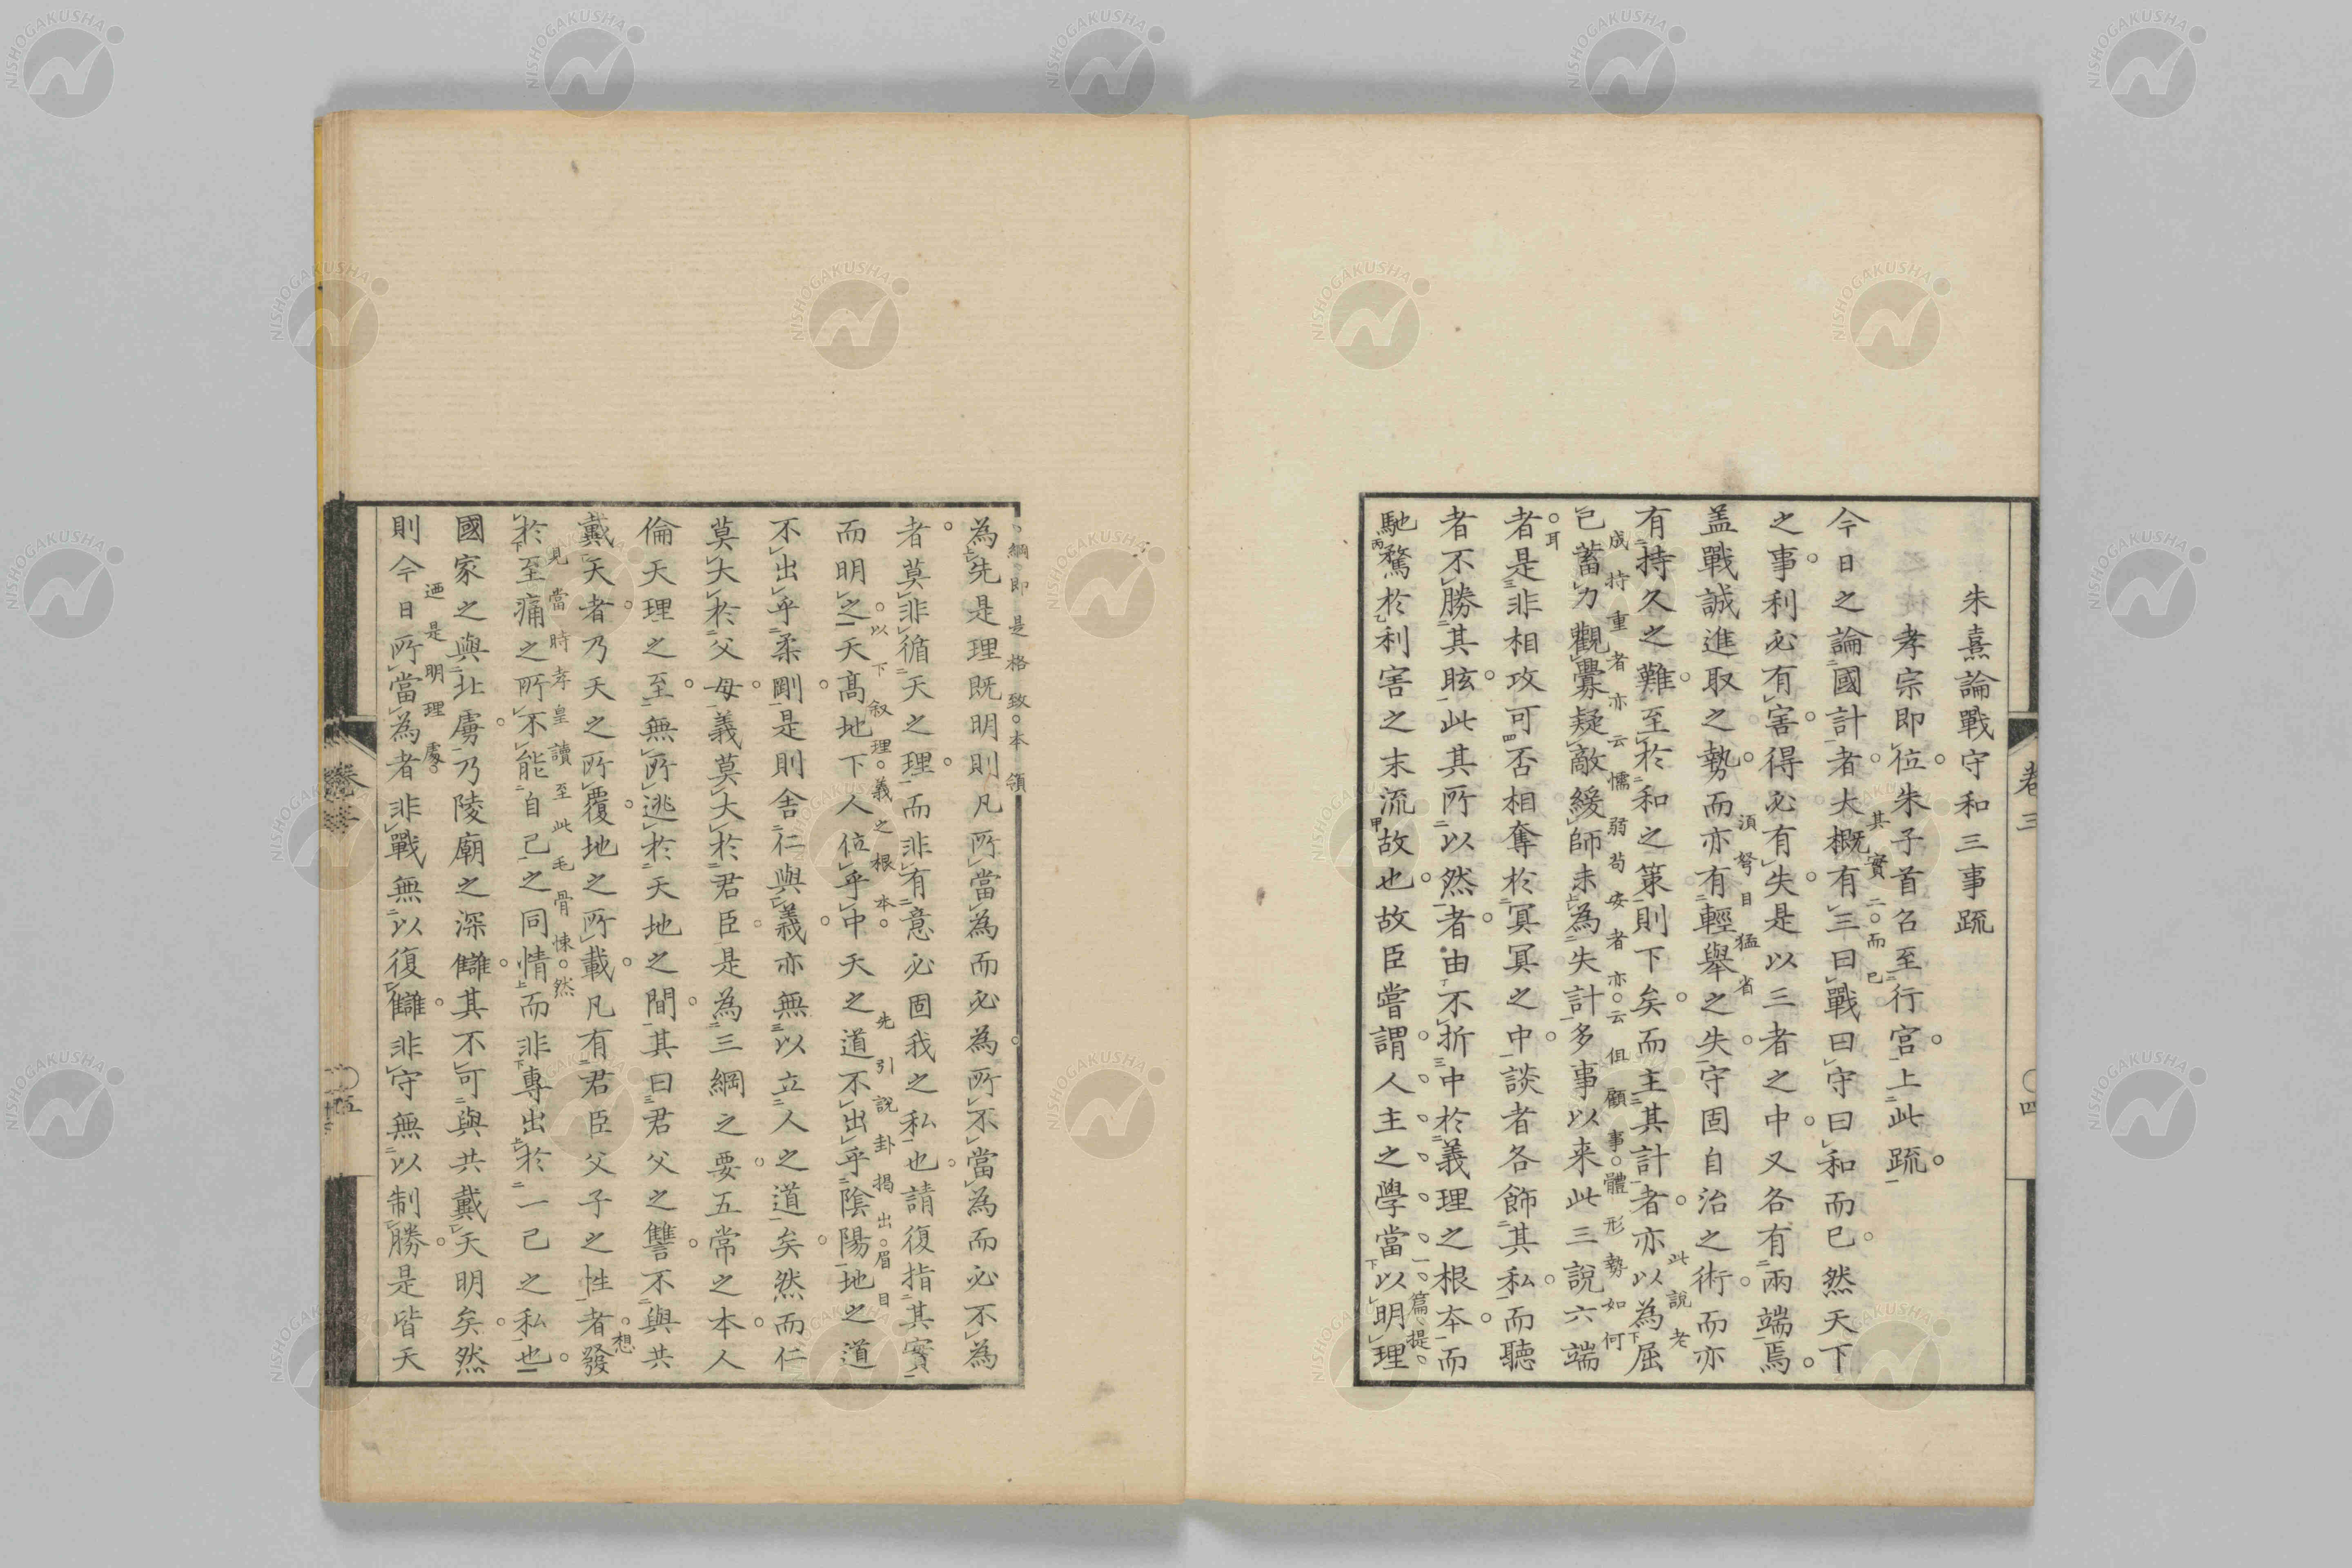 朱熹論戰守和三事疏
孝宗即位朱子首召至行宮上此疏
今日之論國計者大概有三曰戰曰守曰和而已然天下
其實二而已
之事利必有害得必有失是以三者之中又各有兩端焉
蓋戰誠進取之勢而亦有輕舉之失守固自治之術而亦
須努目猛省
有持久之難至於和之策則下矣而主其計者亦以為屈
此說老
成持重者亦云懦弱苟安者亦云但顧事體形勢如何
己蓄力觀釁疑敵緩師未為失計多事以来此三說六端
者是非相攻可否相奪於冥冥之中談者各飾其私而聽
耳
者不勝其眩此其所以然者由不折中於義理之根本而
馳騖於利害之末流故也故臣嘗謂人主之學當以明理
篇提
綱即是格致本領
為先是理既明則凡所當為而必為所不當為而必不為
者莫非循天之理而非有意必固我之私也請復指其實
而明之天高地下人位乎中天之道不出乎陰陽地之道
以下叙理義之根本
先引說卦揭出眉目
不出乎柔剛是則舍仁與義亦無以立人之道矣然而仁
莫大於父母義莫大於君臣是為三綱之要五常之本人
倫天理之至無所逃於天地之間其曰君父之讐不與共
戴天者乃天之所覆地之所載凡有君臣父子之性者發
想
見當時孝皇讀至此毛骨悚然
於至痛之所不能自已之同情而非專出於一己之私也
國家之與北虜乃陵廟之深讎其不可與共戴天明矣然
迺是明理處
則今日所當為者非戰無以復讎非守無以制勝是皆天
卷三
四
卷三
五
NISHOGAKUSHA